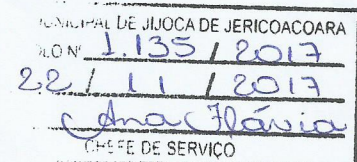 MUNICIPAL DE JIJOCA DE JERICOACOARA
OLO Nº 1.135 / 2017
22 / 11 / 2017
Ana Flávia
CHEFE DE SERVIÇO